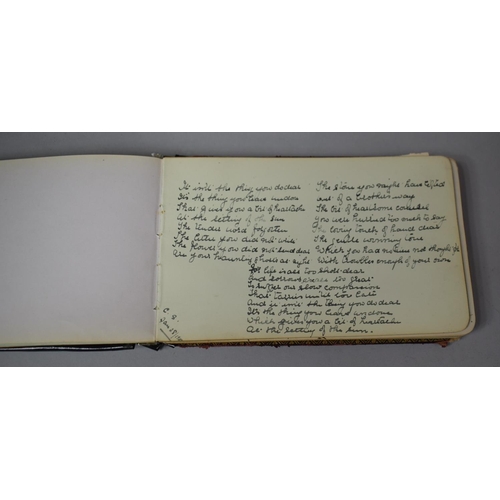 It isn't the thing you do dear
It's the thing you leave undone
That gives you a bit of heartache
At the setting of the sun
The tender word forgotten
The letter you did not write
The flower you did not send dear
Are your haunting ghosts at night
The stone you might have lifted
out of a brother's way
The bit of heartsome counsel
You were hurried too much to say
The loving touch of hand dear
The gentle winning tone
Which you had no time nor thought for
With troubles enough of your own
For life is all too short dear
And sorrow is all too great
To suffer our slow compassion
That tarries until too late
And it isn't the thing you do dear
It's the thing you leave undone
Which gives you a bit of heartache
At the setting of the sun.